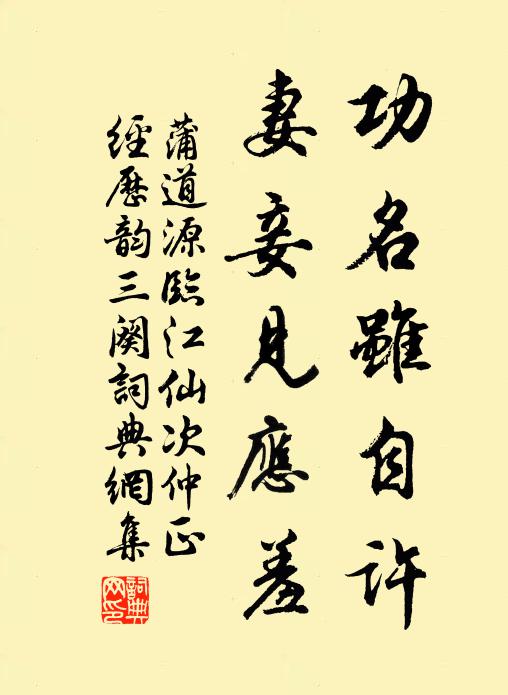 功名雖自許
妻妾見應羞
蒲道源臨江仙次仲正
經歷韵三闋詞典網集